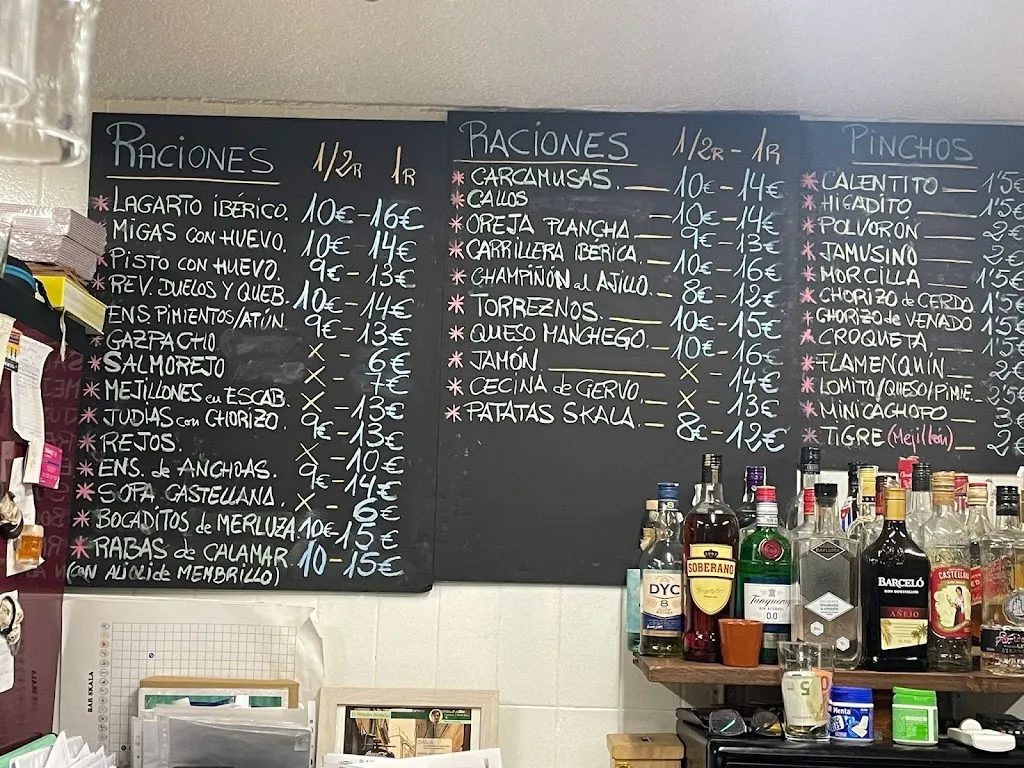 RACIONES 1/2R 1R
* LAGARTO IBÉRICO. 10€-16€
* MIGAS CON HUEVO. 10€ 14€
* PISTO CON HUEVO. 9€-13€
* REV. DUELOS Y QUEB. 10€-14€
* ENS PIMIENTOS/ATÚN 9€-13€
* GAZPACHO X - 6€
* SALMOREJO X - 7€
* MEJILLONES en ESCAB. X -13€
* JUDIAS con CHORIZO. 9€-13€
* REJOS. X -10€
* ENS. de ANCHOAS. 9€-14€
* SOPA CASTELLANA. X - 6€
* BOCADITOS de MERLUZA 10€-15€
* RABAS de CALAMAR 10-15€
(CON ALIOLI DE MEMBRILLO)
RACIONES 1/2R - 1R
* CARCAMUSAS. 10€-14€
* CALLOS 10€-14€
* OREJA PLANCHA 9€-13€
* CARRILLERA IBÉRICA. 10€-16€
* CHAMPIÑÓN al AJILLO. 8€-12€
* TORREZNOS. 10€-15€
* QUESO MANCHEGO. 10€-16€
* JAMÓN X - 14€
* CECINA de CERVO. X - 13€
* PATATAS SKALA. 8€-12€
PINCHOS
* CALENTITO 1'5€
* HIGADITO 1'5€
* POLVORÓN 2€
* JAMUSINO 2€
* MORCILLA 1'5€
* CHORIZO de CERDO 1'5€
* CHORIZO de VENADO 1'5€
* CROQUETA 1'5€
* FLAMENQUÍN 2€
* LOMITO/QUESO/PIMIE. 2'5€
* MINICACHOPO 3€
* TIGRE (Mejillón) 2€
DYC
8
SOBERANO
Tanqueray
0.0
BARCELÓ
AÑEJO
CASTELLANA
BAR SKALA
Menta
5